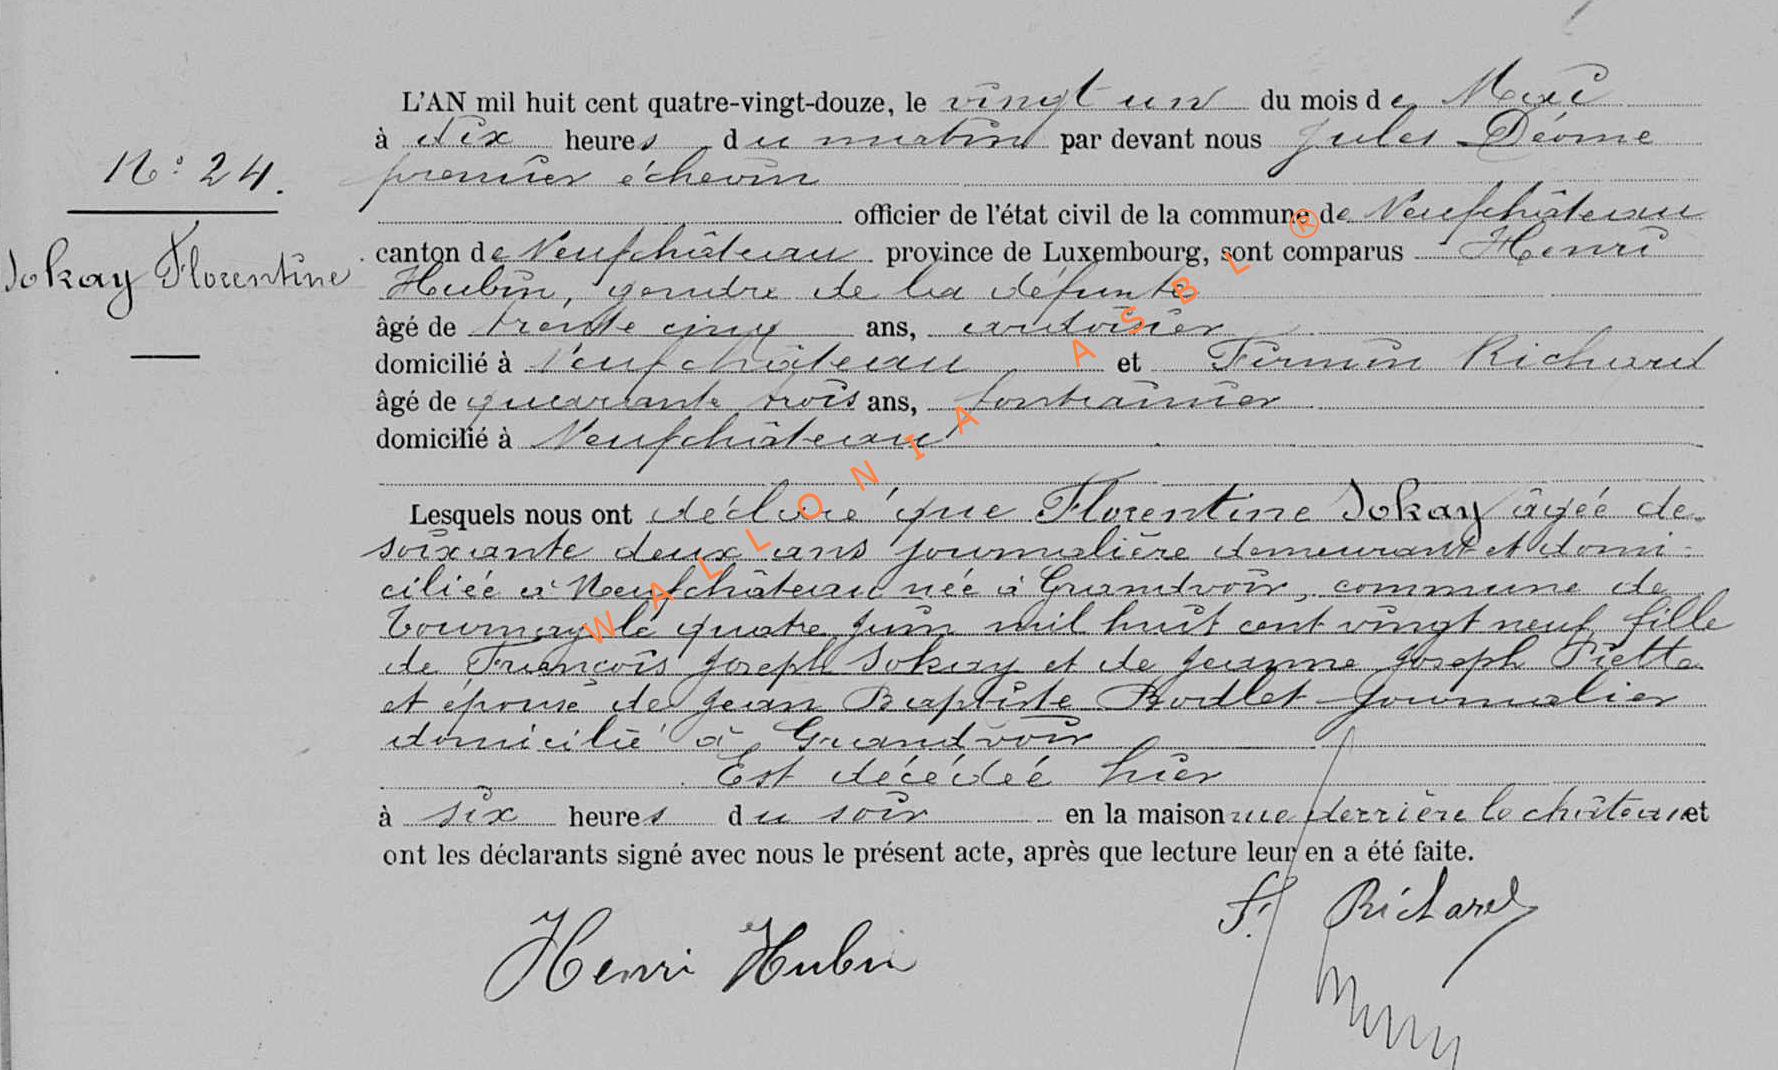 L'AN mil huit cent quatre-vingt-douze, le vingt un du mois de Mai
à dix heures du matin par devant nous Jules Déome
premier échevin
officier de l'état civil de la commune de Neufchâteau
canton de Neufchâteau province de Luxembourg, sont comparus Henri
Hubin, gendre de la défunte
âgé de trente cinq ans, cantonier
domicilié à Neufchâteau et Firmin Richard
âgé de quarante trois ans, fontainier
domicilié à Neufchâteau
Lesquels nous ont déclaré que Florentine Jokay âgée de
soixante deux ans journalière demeurant et domi-
ciliée à Neufchâteau née à Grandvoir, commune de
Tournay le quatre Juin mil huit cent vingt neuf, fille
de François Joseph Jokay et de Jeanne Joseph Piette
et épouse de Jean Baptiste Rodlet journalier
domicilié à Grandvoir
Est décédée hier
à six heures du soir en la maison rue derrière le château et
ont les déclarants signé avec nous le présent acte, après que lecture leur en a été faite.
Henri Hubin
F. Richard
N° 24.
Jokay Florentine
WALLONIA ASBL ®